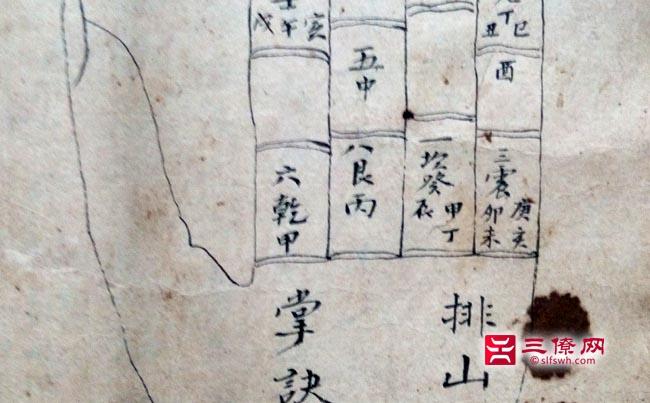 丁
丑 巳
酉
三震
庚亥
卯未
一坎癸
甲丁
辰
五中
八艮丙
壬
午
寅
六乾甲
排山
掌訣
三僚网
slfswh.com